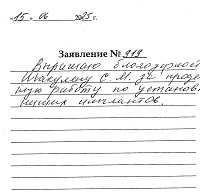 «15» 06 2025г.
Заявление № 919
Выражаю благодарность
Шакулину С. М. за проде
ную работу по установ
имплантов.